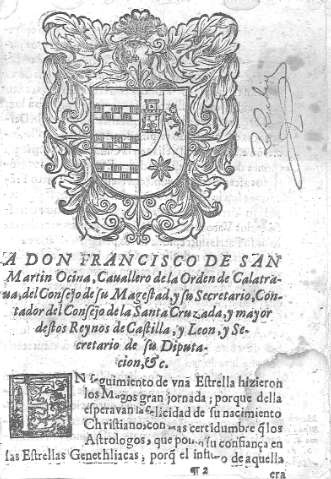 A DON FRANCISCO DE SAN
Martin Ocina, Cauallero de la Orden de Calatra-
ua, del Consejo de su Magestad, y su Secretario, Con-
tador del Consejo de la Santa Cruzada, y mayor
destos Reynos de Castilla, y Leon, y Se-
cretario de su Diputa-
cion, &c.
EN seguimiento de vna Estrella hizieron
los Magos gran jornada; porque della
esperavan la felicidad de su nacimiento
Christiano, con mas certidumbre q̃ los
Astrologos, que ponen su confiança en
las Estrellas Genethliacas; porq̃ el influxo de aquella
¶ 2
era